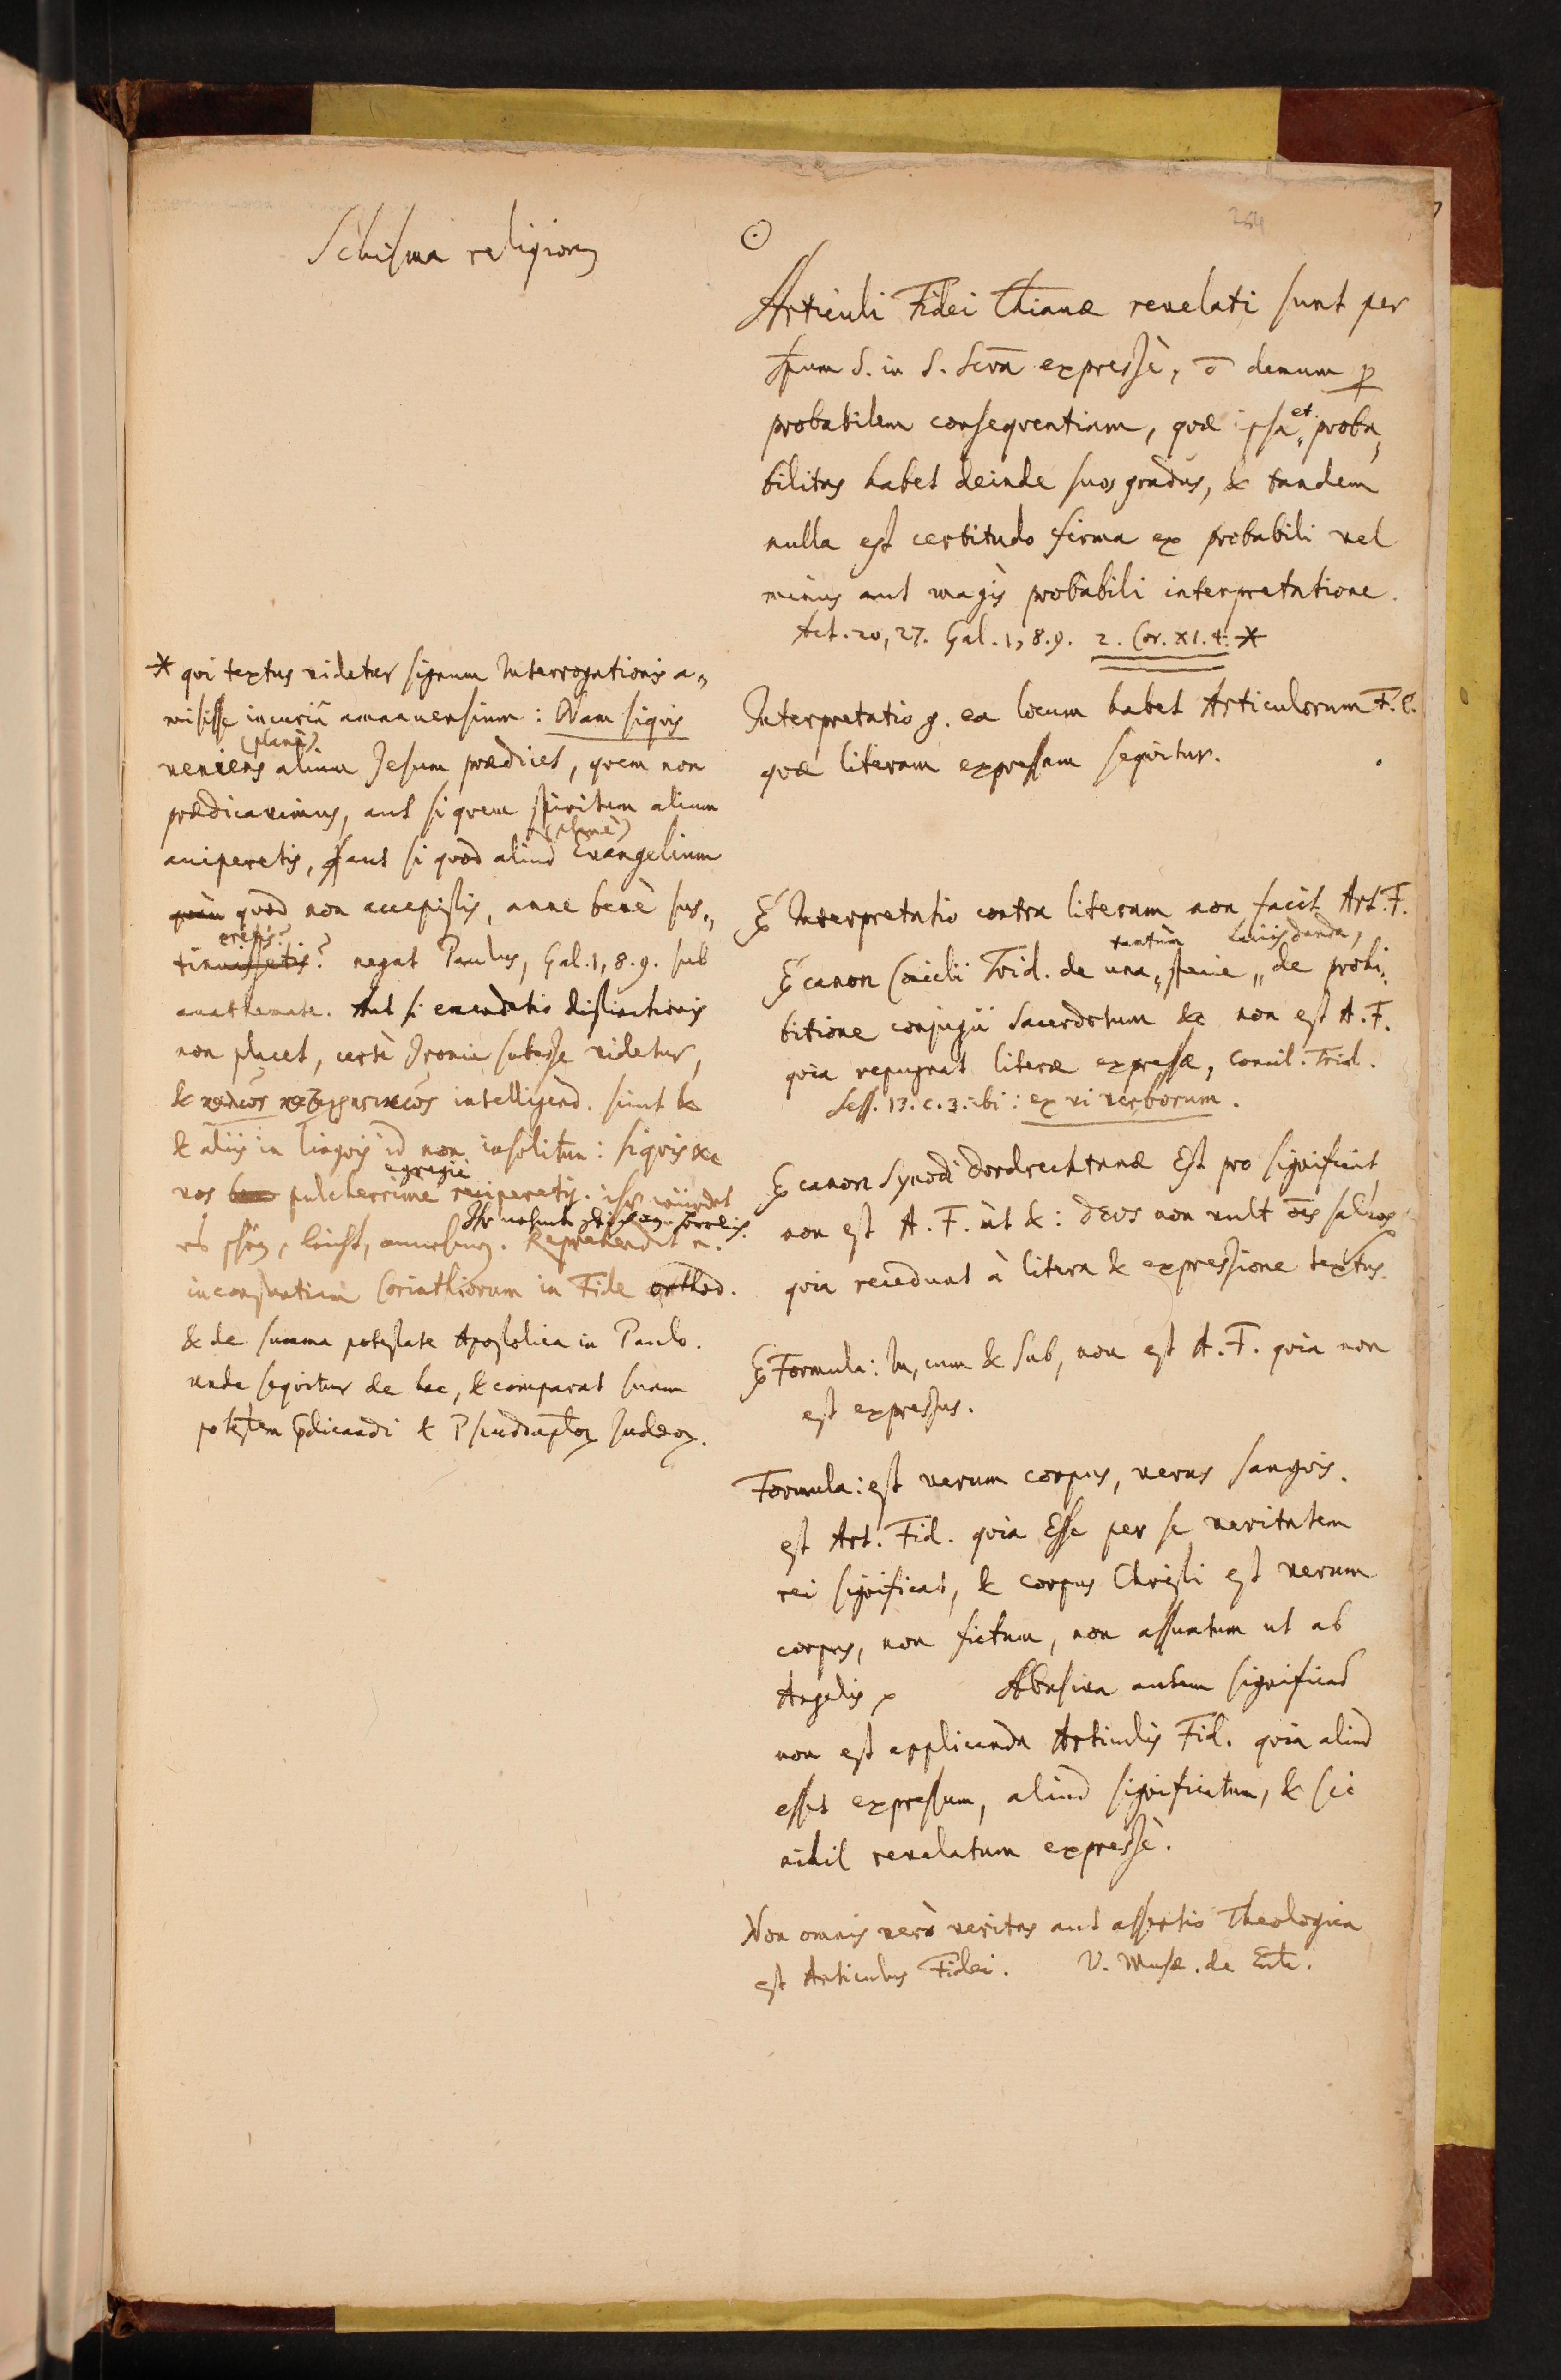 Schisma religionis
254
⊙
Articuli Fidei Chianæ revelati sunt per
Spum S. in S. Scra expressè, ō demum p
probabilem conseqventiam, qvæ ipsa et proba„
bilitas habet deinde suos gradus, & tandem
nulla est certitudo firma ex probabili vel
minus aut magis probabili interpretatione.
Act. 20, 27. Gal. 1, 8. 9. 2. Cor. XI. 4. *
Interpretatio g. ea locum habet Articulorum F. C.
qvæ literam expressam seqvitur.
Interpretatio contra literam non facit Art. F.
tantùm Laicis danda,
canon Concilii Trid. de una specie „ de prohi„
bitione conjugii Sacerdotum &c non est A. F.
qvia repugnat literæ expressæ, Concil. Trid.
Sess. 13. c. 3. ibi: ex vi verborum.
canon Synodi Dordrechtanæ Est pro significat
non est A. F. ut &: DEUS non vult oēs salvos
qvia recedunt à litera & expressione textus.
Formula: In, cum & sub, non est A. F. qvia non
est expressus.
Formula: est verum corpus, verus sangvis.
est Art. Fid. qvia Esse per se veritatem
rei significat, & corpus Christi est verum
corpus, non fictum, non assumtum ut ab
Angelis Abusiva autem significat
non est applicanda Articulis Fid. qvia aliud
esset expressum, aliud significatum, & sic
nihil revelatum expressè.
Non omnis verò veritas aut assertio Theologica
est Articulus Fidei. V. Musæ. de
* qvi textus videtur signum Interrogationis a„
misisse incuriâ amanuensium: Nam siqvis
(planè)
veniens alium Jesum prædicet, qvem non
prædicavimus, aut si qvem spiritum alium
(planè)
acciperetis, aut si qvod aliud Evangelium
qvod non accepistis, anne benè sus„
eretis?
tinuissetis? negat Paulus, Gal. 1, 8. 9. sub
anathemate. Aut si emendatio distinctionis
non placet, certè Ironia subesse videtur,
& intelligend. sicut &
& aliis in lingvis id non insolitum: siqvis &c
egregiè
vos pulcherrimè reciperetis. ihr würdet
es schön, leicht,
Reprehendit n.
inconstantiam Corinthiorum in Fide orthod.
& de summa potestate Apostolica in Paulo.
unde seqvitur de hoc, & comparat suam
potestem prdicandi & Pseudoaptor Judæor.